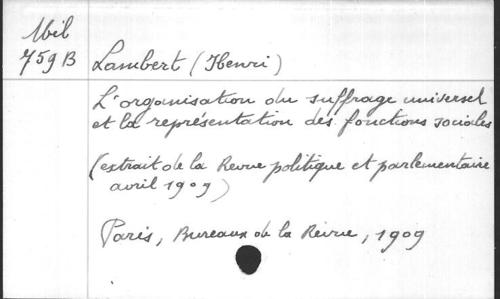 Mil
759 B
Lambert (Henri)
L'organisation du suffrage universel
et la représentation des fonctions sociales
(extrait de la Revue politique et parlementaire
avril 1909)
Paris, Bureaux de la Revue, 1909